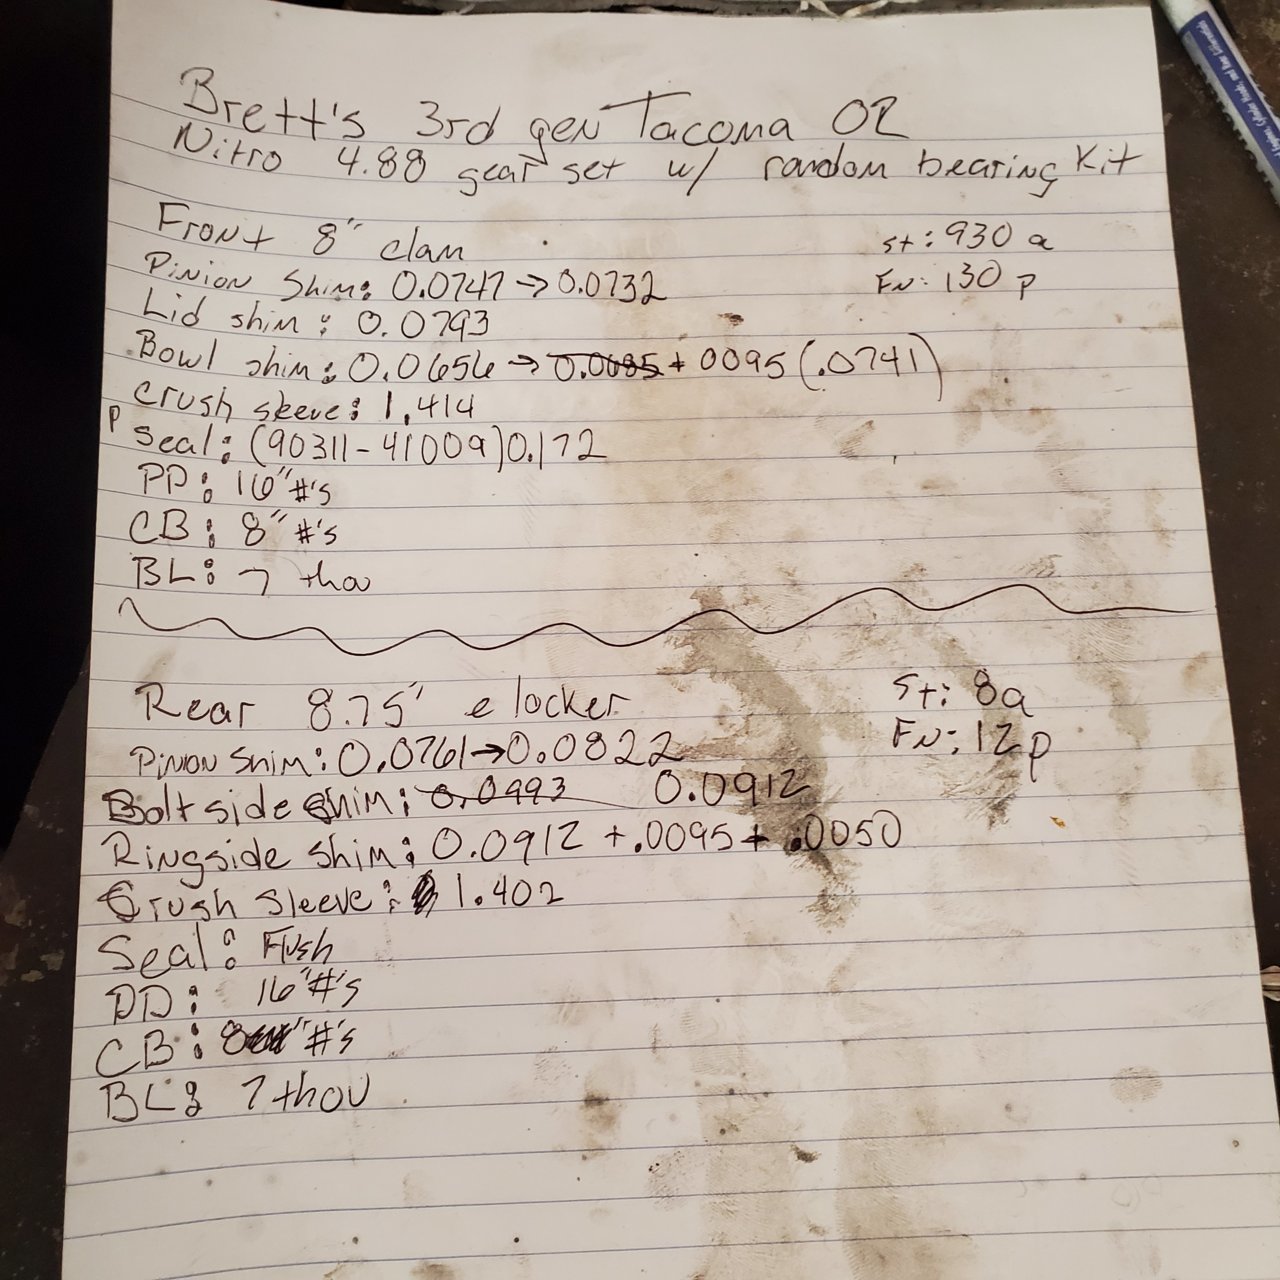 Brett's 3rd gen Tacoma OR
Nitro 4.88 gear set w/ random bearing Kit
Front 8" clam
st: 930 a
Pinion Shim: 0.0747 → 0.0732
Fn: 130 p
Lid shim: 0.0793
Bowl shim: 0.0656 → 0.0685 + 0095 (.0741)
Crush sleeve: 1.414
P Seal: (90311-41009) 0.172
PP: 16" #'s
CB: 8" #'s
BL: 7 thou
Rear 8.75' e locker
St: 8a
Pinion Shim: 0.0761 → 0.0822
Fn: 12p
Boltside Shim: 0.0993 0.0912
Ringside shim: 0.0912 + .0095 + .0050
Crush Sleeve: 1.402
Seal: Flush
PD: 16" #'s
CB: 8" #'s
BL: 7 thou